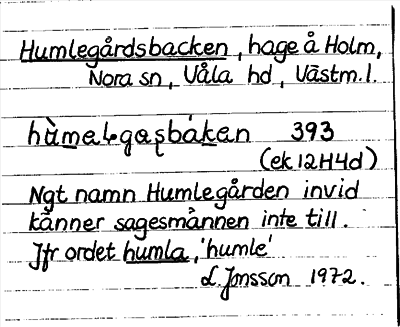 Humlegårdsbacken, hage å Holm,
Nora sn, Våla hd, Västm.l.
hùmelgaʂbáken 393
(ek 12H4d)
Ngt namn Humlegården invid
känner sagesmannen inte till.
Jfr ordet humla, 'humle'
L. Jonsson 1972.